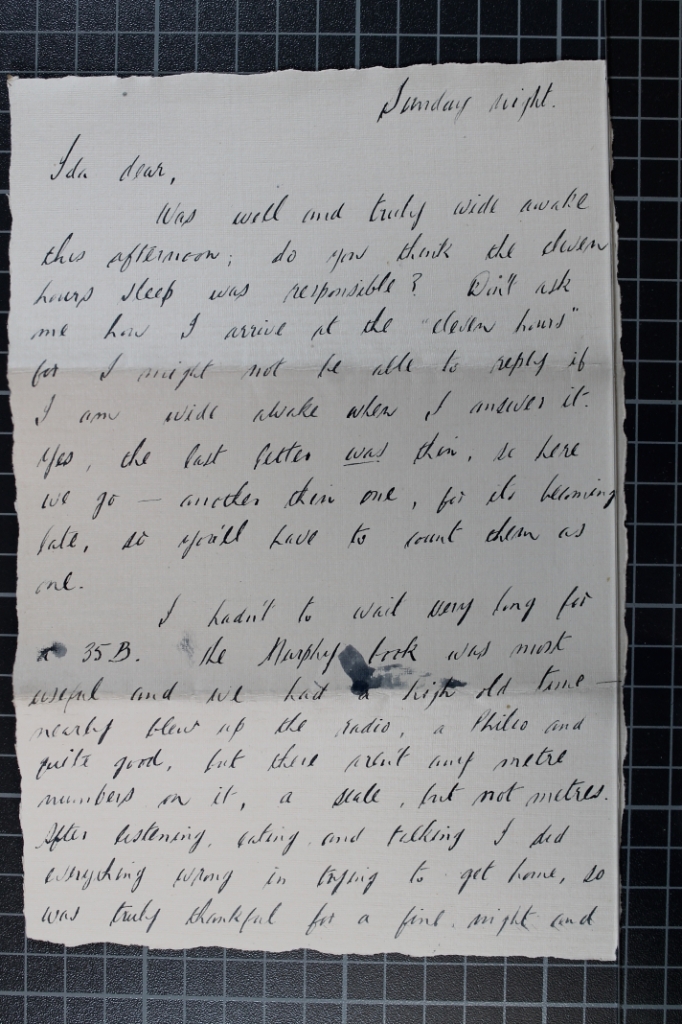 Sunday night.
Ida dear,
Was well and truly wide awake
this afternoon; do you think the eleven
hours sleep was responsible? Don't ask
me how I arrive at the "eleven hours"
for I might not be able to reply if
I am wide awake when I answer it.
Yes, the last letter was thin, so here
we go — another thin one, for its becoming
late, so you'll have to count them as
one.
I hadn't to wait very long for
a 35B. The Murphy book was most
useful and we had a high old time —
nearly blew up the radio, a Philco and
quite good, but there aren't any metre
numbers on it, a scale, but not metres.
After listening, eating and talking I did
everything wrong in trying to get home, so
was truly thankful for a fine night and